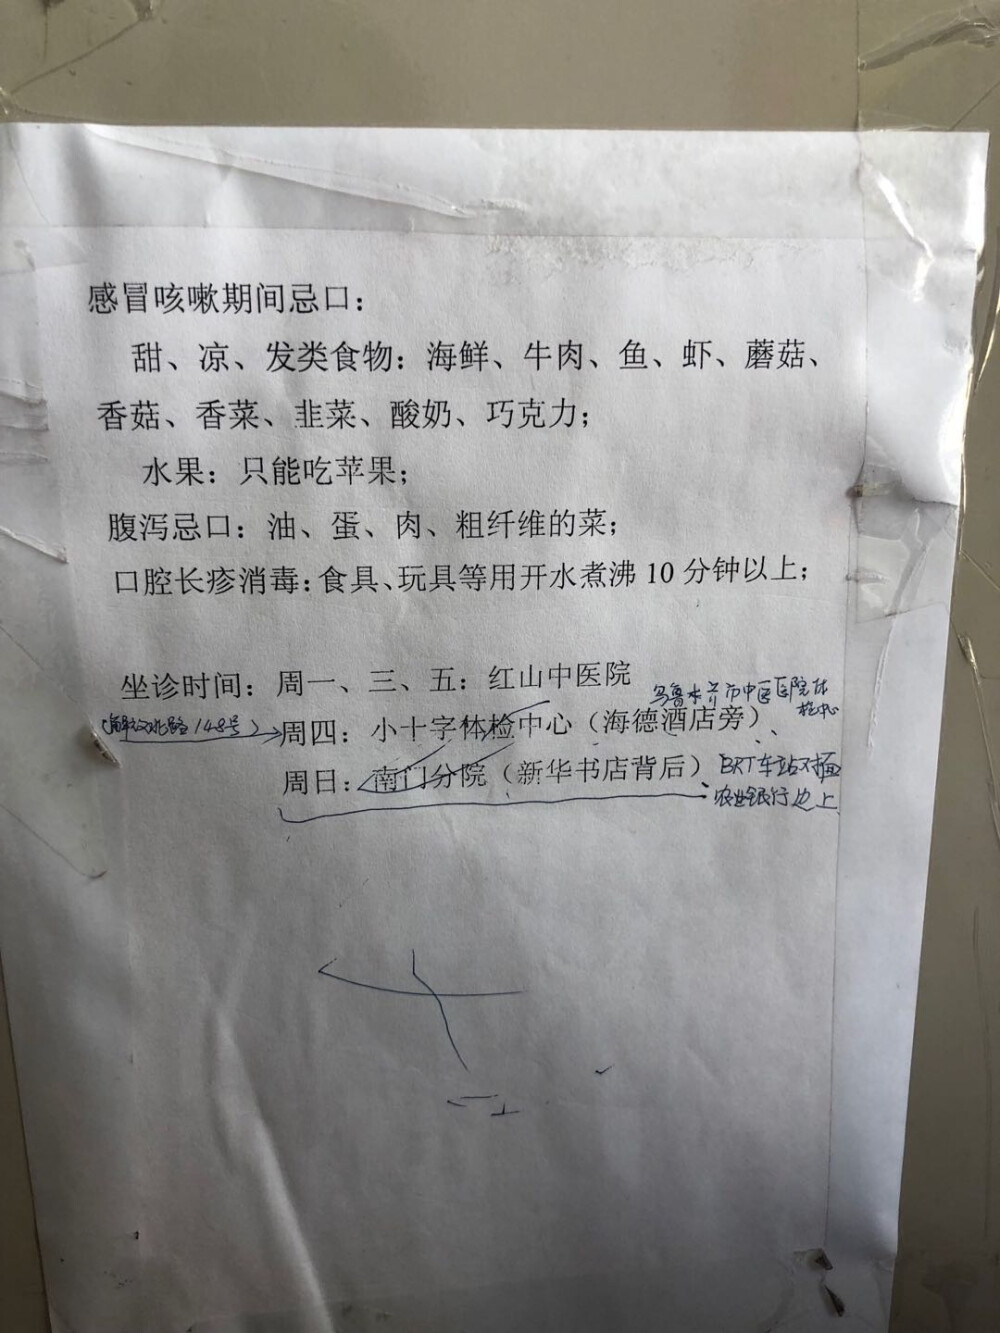 感冒咳嗽期间忌口：
甜、凉、发类食物：海鲜、牛肉、鱼、虾、蘑菇、
香菇、香菜、韭菜、酸奶、巧克力；
水果：只能吃苹果；
腹泻忌口：油、蛋、肉、粗纤维的菜；
口腔长疹消毒：食具、玩具等用开水煮沸 10 分钟以上；
坐诊时间：周一、三、五：红山中医院
乌鲁木齐市中医医院体
检中心
148号
周四：小十字体检中心（海德酒店旁）
周日：南门分院（新华书店背后）
BRT车站对面
农业银行边上